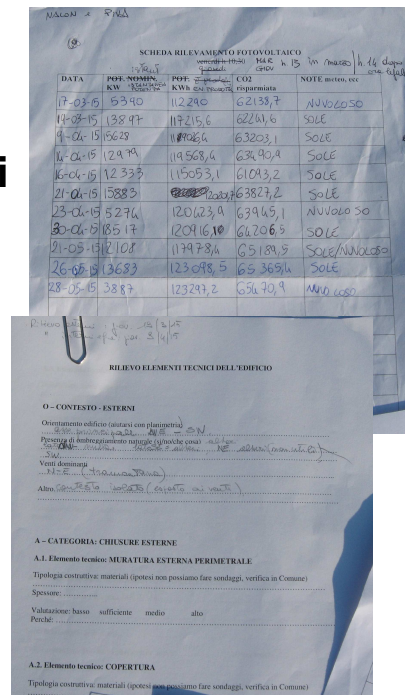 i
NALON e PIVA
SCHEDA RILEVAMENTO FOTOVOLTAICO
venerdì h 10,30 MAR h. 13 in marzo / h 14 dopo
giovedì GIOV ora legale
DATA POT. NOMIN. KW ISTANTANEA POTENZA POT. KWh EN. PRODOTTA CO2 risparmiata NOTE meteo, ecc
17-03-15 5390 112290 62138,7 NUVOLOSO
19-03-15 13897 117215,6 62241,6 SOLE
9-04-15 15628 63203,1 SOLE
14-04-15 12979 119568,4 63490,9 SOLE
16-04-15 12333 115053,1 61093,2 SOLE
21-04-15 15883 63827,2 SOLE
23-04-15 5274 120423,9 63945,1 NUVOLOSO
30-04-15 18517 120916,10 64206,5 SOLE
21-05-15 12108 117978,4 65189,5 SOLE/NUVOLOSO
26-05-15 13683 123098,5 65365,4 SOLE
28-05-15 3887 123297,2 65470,9 NUVOLOSO
RILIEVO ELEMENTI TECNICI DELL'EDIFICIO
O – CONTESTO - ESTERNI
Orientamento edificio (aiutarsi con planimetria)
asse principale NE – SW
Presenza di ombreggiamento naturale (si/no/che cosa)
SW
Venti dominanti
N-E (tramontana)
Altro contesto isolato (esposto ai venti)
A – CATEGORIA: CHIUSURE ESTERNE
A.1. Elemento tecnico: MURATURA ESTERNA PERIMETRALE
Tipologia costruttiva: materiali (ipotesi non possiamo fare sondaggi, verifica in Comune)
Spessore: ................
Valutazione: basso sufficiente medio alto
Perché: ................
A.2. Elemento tecnico: COPERTURA
Tipologia costruttiva: materiali (ipotesi non possiamo fare sondaggi, verifica in Comune)